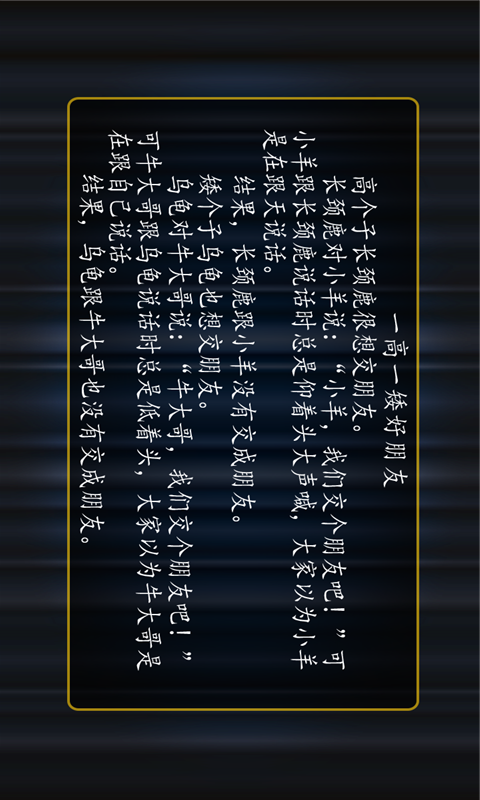 一高一矮好朋友
高个子长颈鹿很想交朋友。
长颈鹿对小羊说：“小羊，我们交个朋友吧！”可
小羊跟长颈鹿说话时总是仰着头大声喊，大家以为小羊
是在跟天说话。
结果，长颈鹿跟小羊没有交成朋友。
矮个子乌龟也想交朋友。
乌龟对牛大哥说：“牛大哥，我们交个朋友吧！”
可牛大哥跟乌龟说话时总是低着头，大家以为牛大哥是
在跟自己说话。
结果，乌龟跟牛大哥也没有交成朋友。